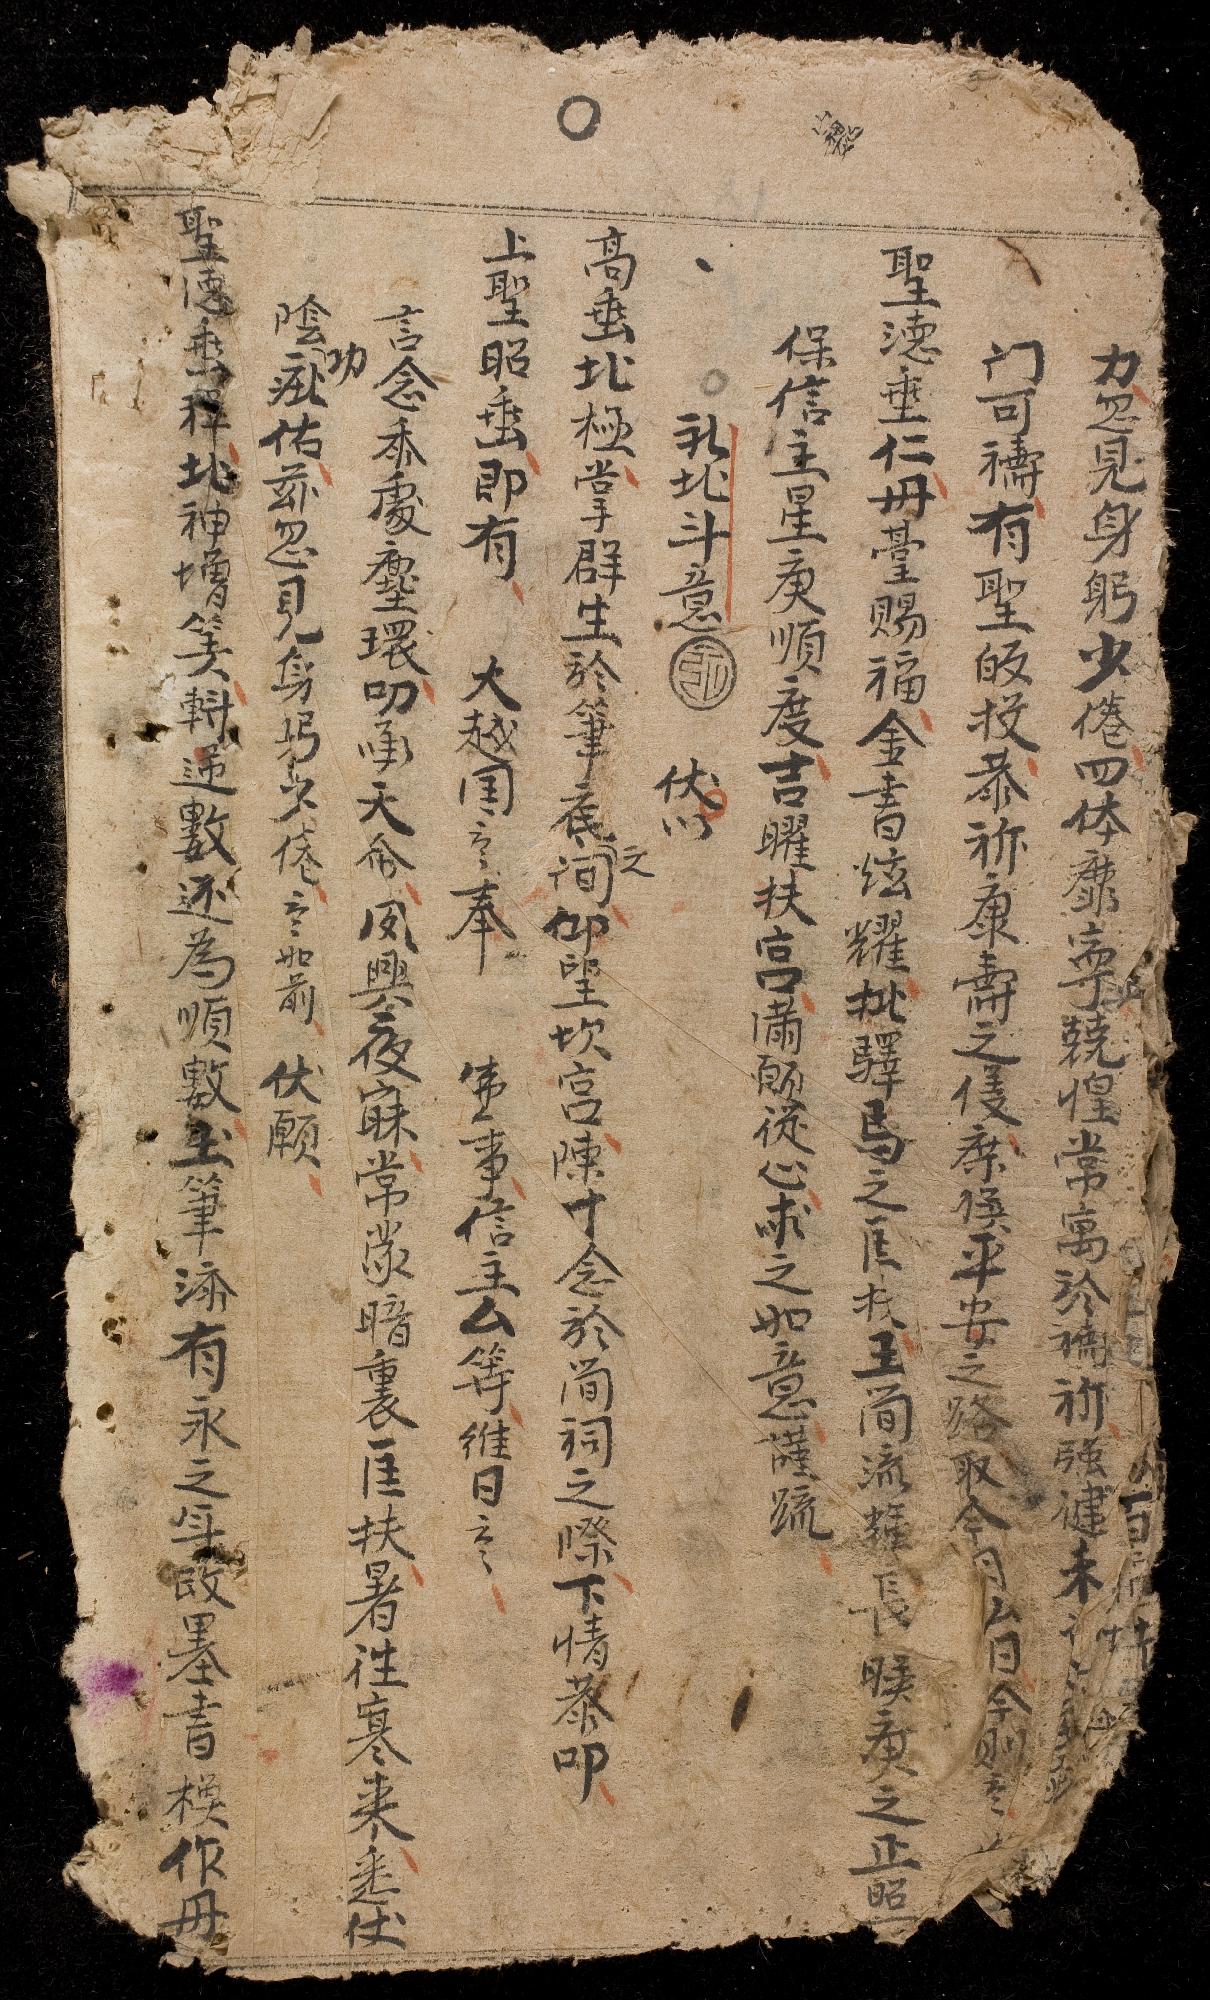 力忽見身躬少倦四体靡寧兢惶常寓於禱祈强健未
门可禱有聖皈投恭祈康壽之僅庶俟平安之路取今月厶日今則云
聖德垂仁丹臺賜福金書炫耀批驛馬之匡扶玉简流輝長賧庚之正照
保信主星庚順度吉曜扶宮满願從心求之如意謹疏
礼北斗意 伏以
高垂北極掌群生於筆底之间仰望坎宫陳寸念於简祠之際下情恭叩
上聖昭垂即有 大越国云奉 佛事信主厶等維日云
言念忝處塵環叨承天命夙興夜寐常蒙暗裏匡扶暑徃寒来悉伏
陰功㳀佑茲忽見身躬少倦云如前 伏願
聖德垂祥北神增筭斡逆數还為順數玉筆添有永之年改墨書模作丹